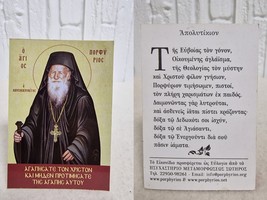 Ο
ΑΓΙΟΣ
ΠΟΡΦΥ
ΡΙΟΣ
ΑΓΑΠΗΣΑΤΕ ΤΟΝ ΧΡΙΣΤΟΝ
ΚΑΙ ΜΗΔΕΝ ΠΡΟΤΙΜΗΣΑΤΕ
ΤΗΣ ΑΓΑΠΗΣ ΑΥΤΟΥ
Ἀπολυτίκιον
Τῆς Εὐβοίας τὸν γόνον,
Οἰκουμένης ἀγλάϊσμα,
τῆς Θεολογίας τὸν μύστην
καὶ Χριστοῦ φίλον γνήσιον,
Πορφύριον τιμήσωμεν, πιστοί,
τὸν πλήρη χαρισμάτων ἐκ παιδός.
Δαιμονῶντας γὰρ λυτροῦται,
καὶ ἀσθενεῖς ἰᾶται πίστει κράζοντας·
δόξα τῷ δεδωκότι σοι ἰσχύν,
δόξα τῷ σὲ ἁγιάσαντι,
δόξα τῷ ἐνεργοῦντι διὰ σοῦ
πᾶσιν ἰάματα.
Τὸ Εἰκονίδιο προσφέρεται ὡς Εὐλογία ἀπὸ τὸ
ΗΣΥΧΑΣΤΗΡΙΟ ΜΕΤΑΜΟΡΦΩΣΕΩΣ ΣΩΤΗΡΟΣ